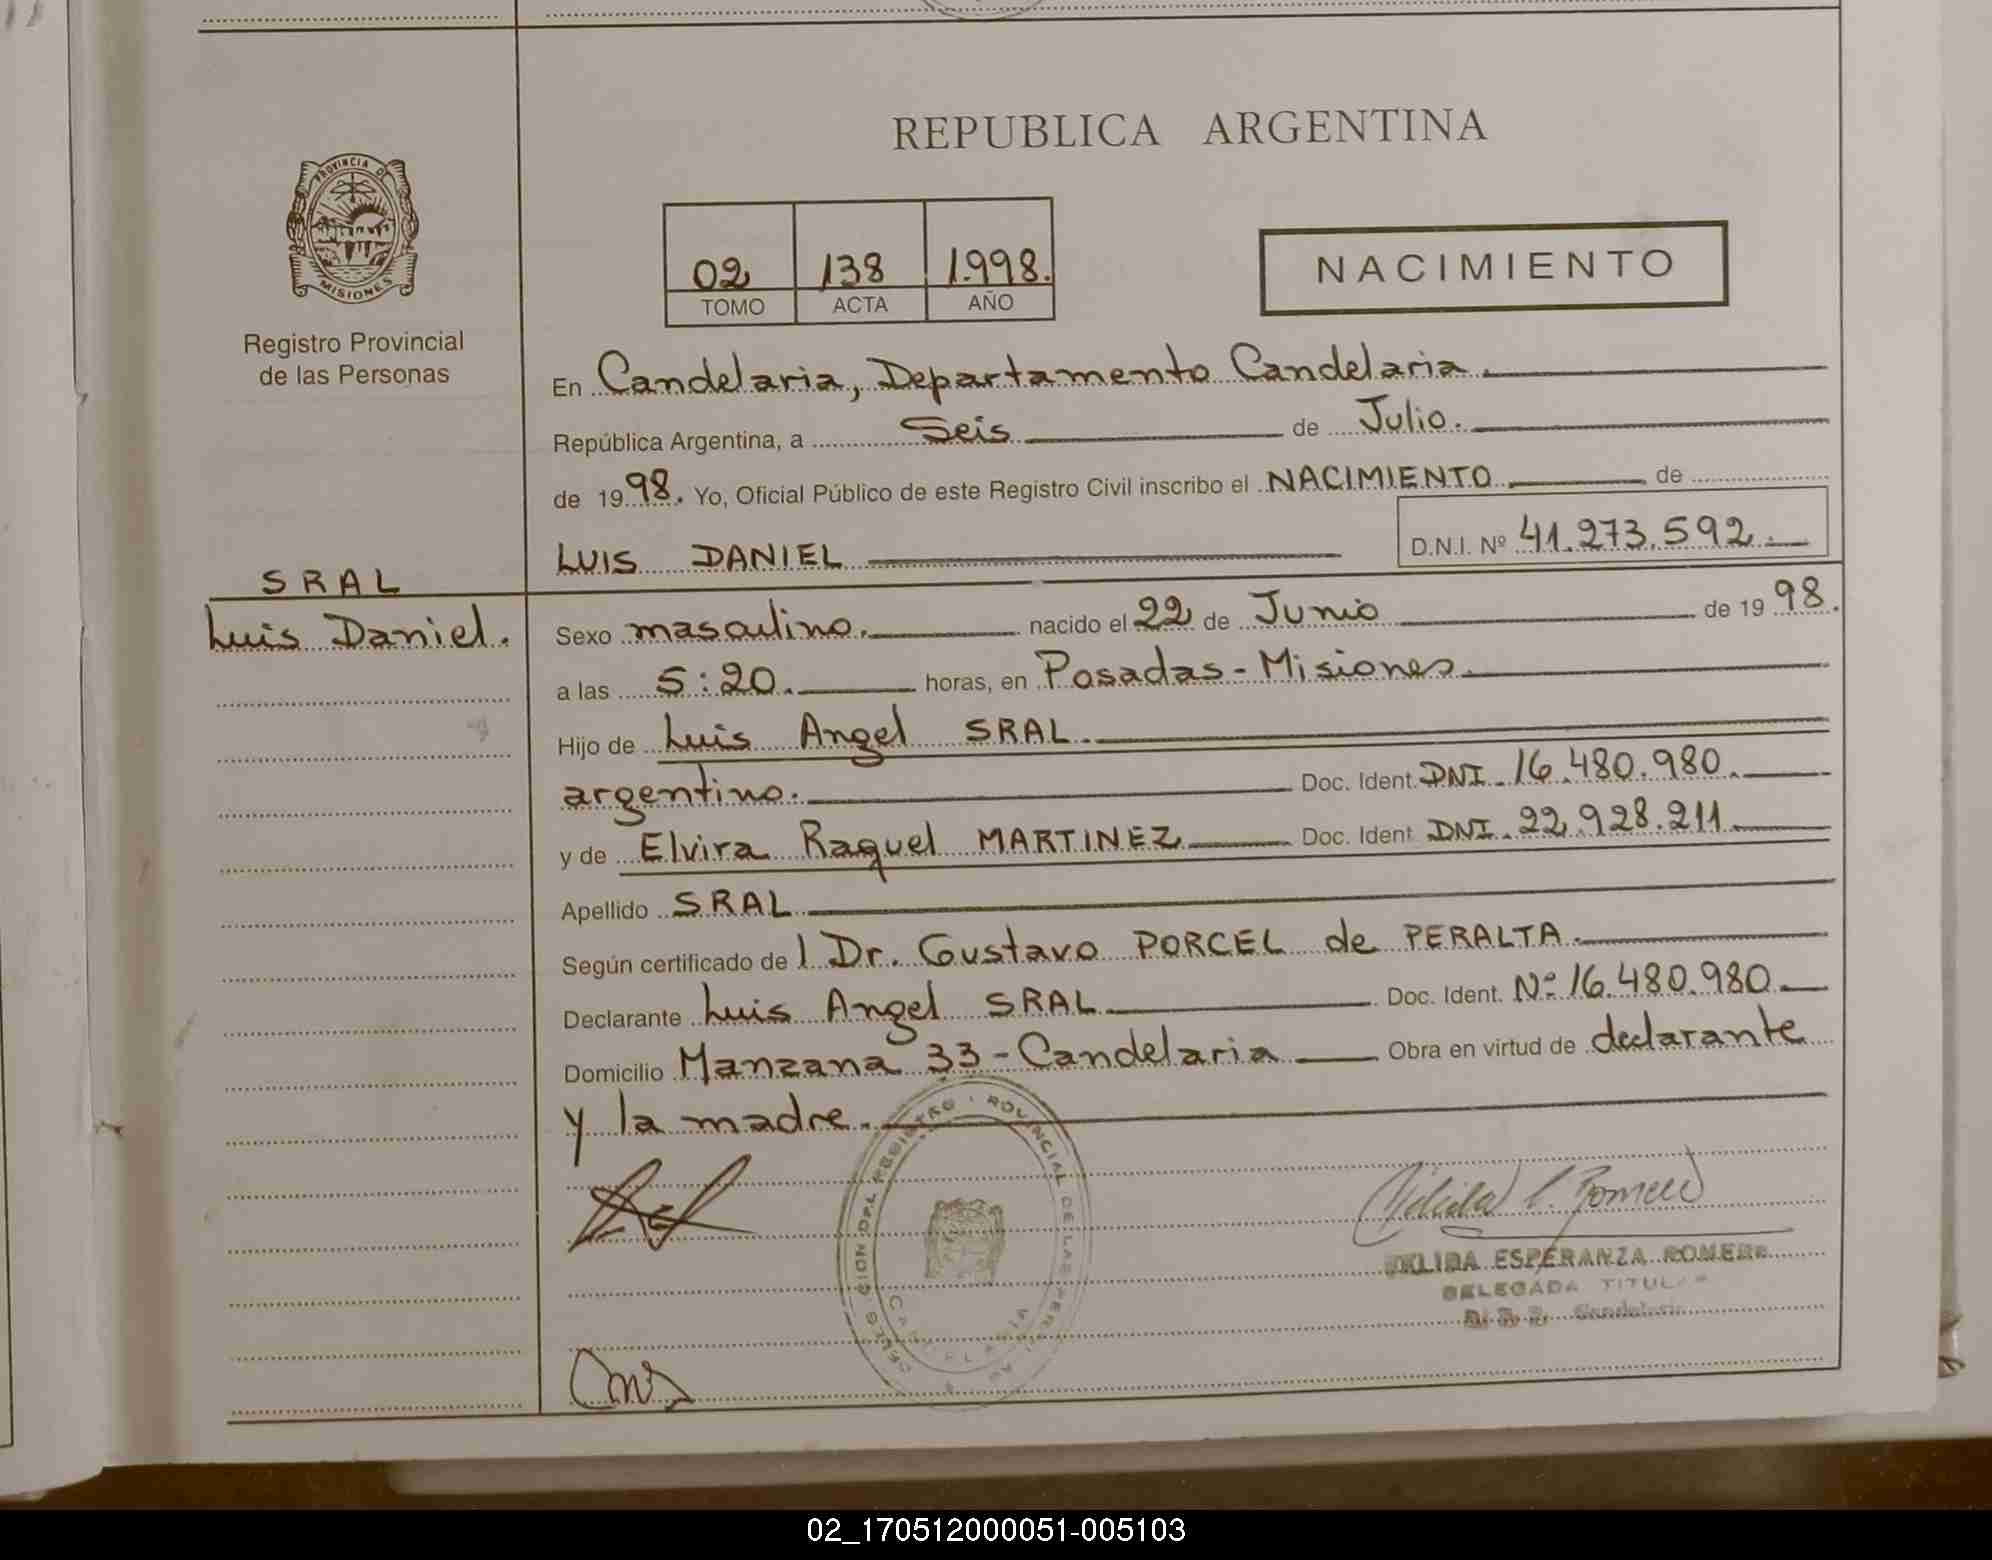 REPUBLICA ARGENTINA
PROVINCIA DE
MISIONES
Registro Provincial
de las Personas
02 138 1.998.
TOMO ACTA AÑO
NACIMIENTO
En Candelaria, Departamento Candelaria.
República Argentina, a Seis de Julio.
de 19 98. Yo, Oficial Público de este Registro Civil inscribo el NACIMIENTO de
LUIS DANIEL D.N.I. Nº 41.273.592.
SRAL
Luis Daniel.
Sexo masculino. nacido el 22 de Junio de 19 98.
a las 5:20. horas, en Posadas - Misiones.
Hijo de Luis Angel SRAL.
argentino. Doc. Ident. DNI. 16.480.980.
y de Elvira Raquel MARTINEZ Doc. Ident. DNI. 22.928.211.
Apellido SRAL
Según certificado de l Dr. Gustavo PORCEL de PERALTA.
Declarante Luis Angel SRAL Doc. Ident. Nº 16.480.980.
Domicilio Manzana 33 - Candelaria Obra en virtud de declarante
y la madre.
ESPERANZA ROMERO
DELEGADA TITULAR
Candelaria
02_170512000051-005103